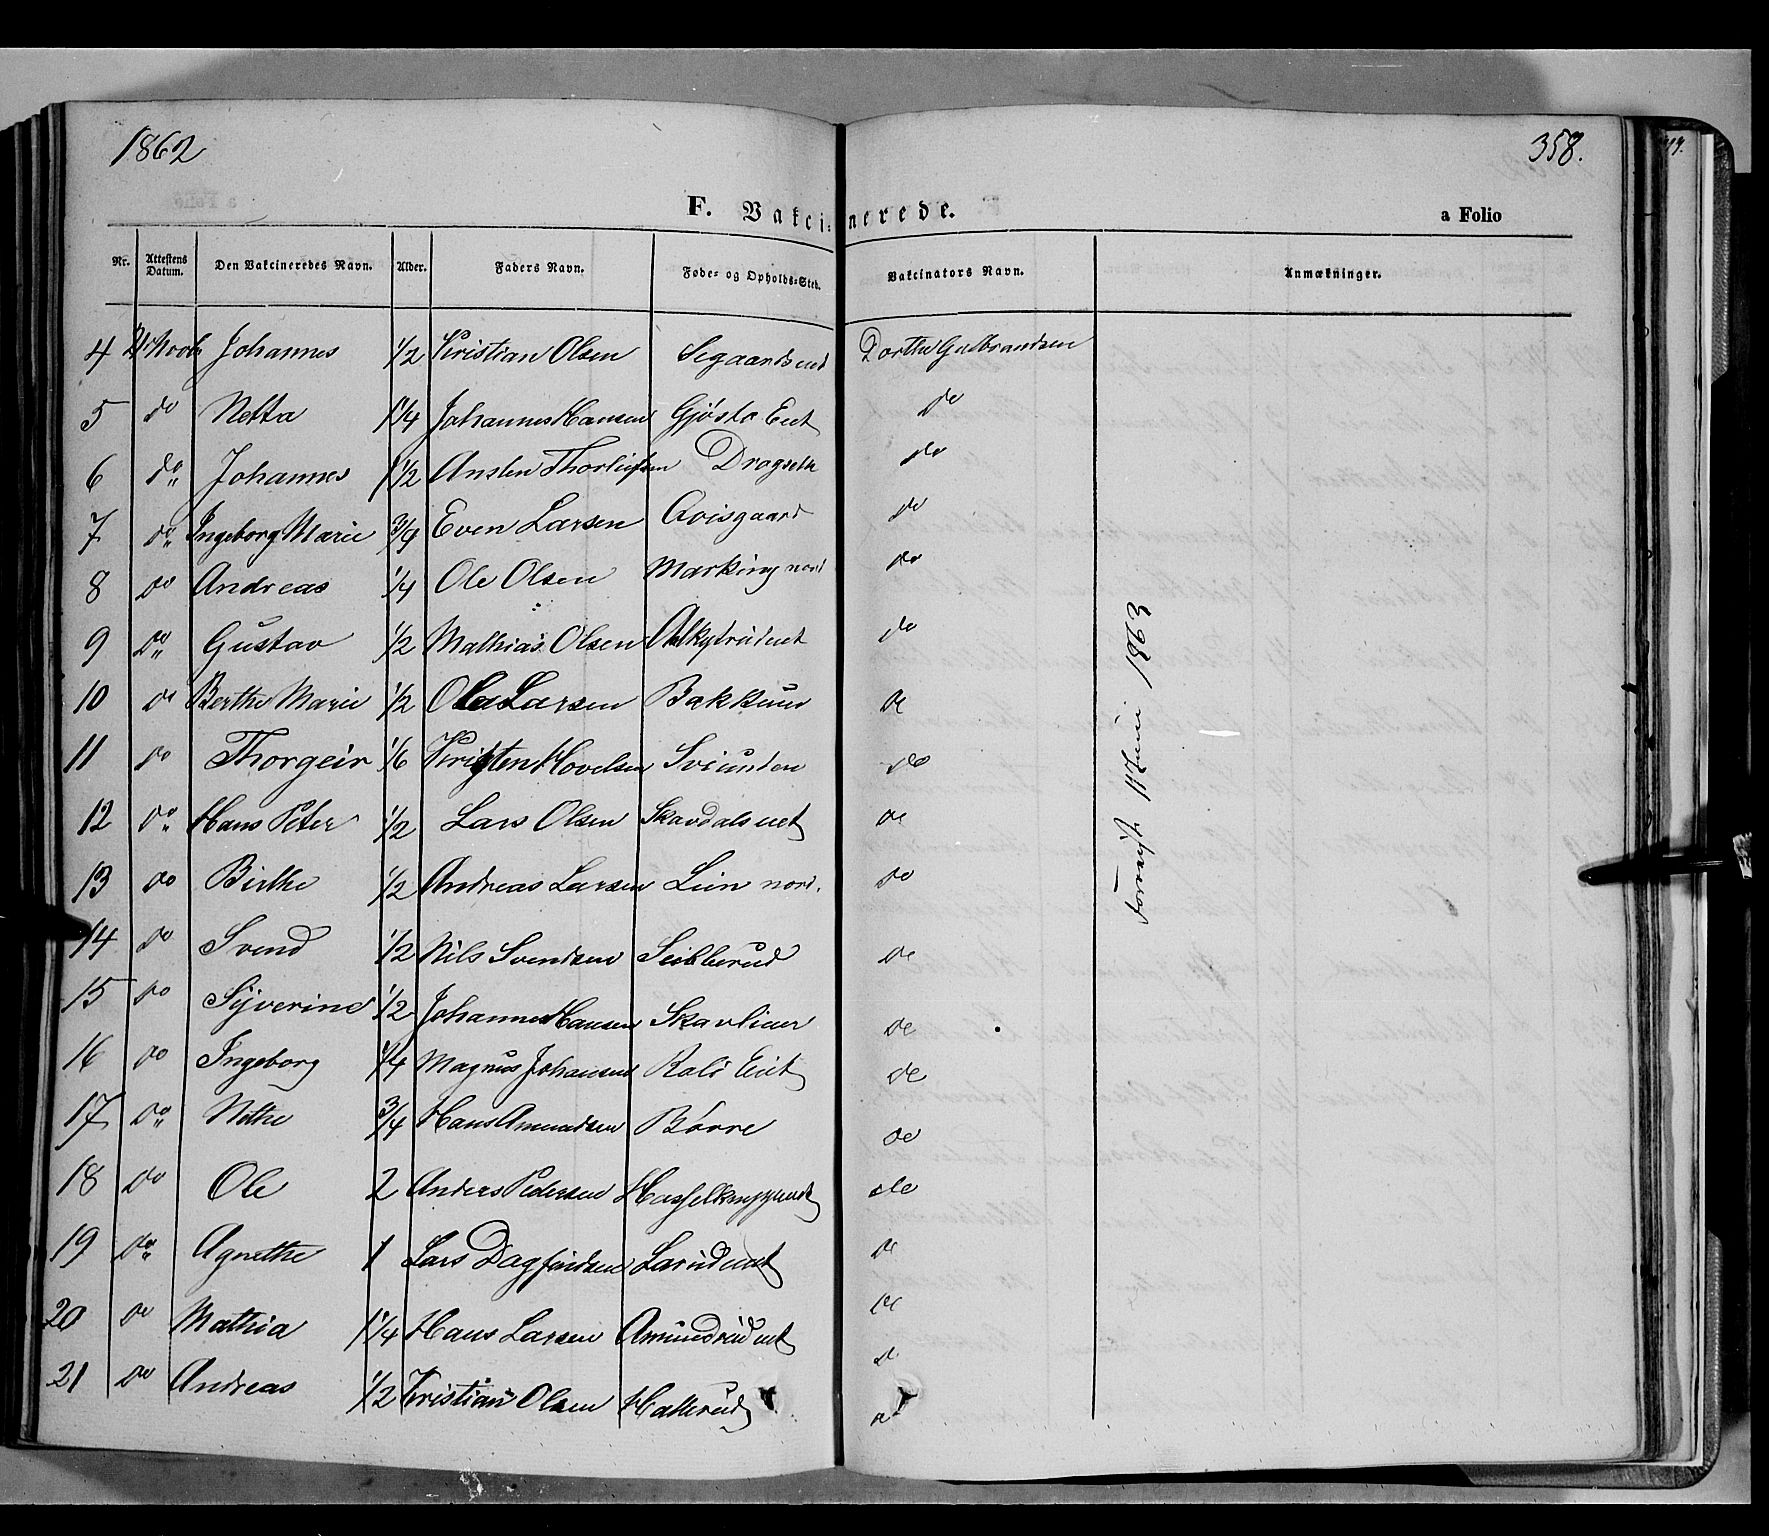 1862
358.
F. Vakcinerede.
a Folio
Nr. Attestens Datum. Den Vakcineredes Navn. Alder. Faders Navn. Føde- og Opholds-Sted. Vakcinators Navn. Anmærkninger.
4 Johannes 1/2 Kristian Olsen Segaardseiet Dorthe Gulbrandsen
5 do Netta 1 1/4 Johannes Hansen Gjøsto Eiet do
6 do Johannes 1 1/2 Ansten Drogseth do
7 do Ingeborg Marie Even Larsen Qvisgaard do
8 do Andreas 1/4 Ole Olsen Marking nord do
9 do Gustav 1/2 Mathias Olsen do
10 do Berthe Marie 1/2 Ole Larsen Bakkeun do
11 do Thorgeir 1/6 Kristen Hovelsen Sviunden do
12 do Hans Peter 1/2 Lars Olsen Skavdalseiet do
13 do Birthe 1/2 Andreas Larsen Lien nord. do
14 do Svend 1/2 Nils Svendsen do
15 do Syverine 1/2 Johannes Hansen Skavlien do
16 do Ingeborg 1/4 Magnus Johansen Eiet do
17 do Nethe 3/4 Hans Amundsen Børre do
18 do Ole 2 Anders Pedersen do
19 do Agnethe 1 Lars Dagfindsen Larudeiet do
20 do Mathia 1 1/4 Hans Larsen Amundrudeiet do
21 do Andreas 1/2 Kristian Olsen Hatterud
1863